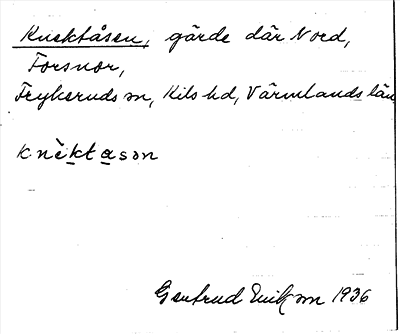 Knektåsen, gärde där Nord,
Forsnor,
Frykeruds sn, Kils hd, Värmlands län
knèktason
Gertrud Eriksson 1936